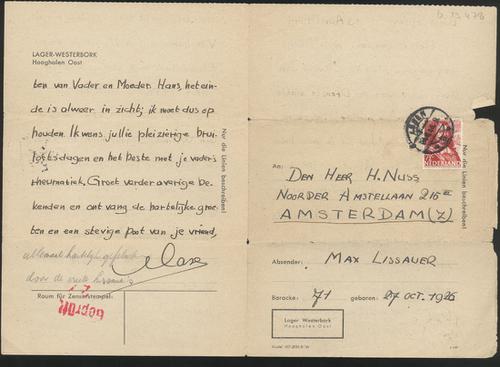 LAGER-WESTERBORK
Hooghalen Oost
ten van Vader en Moeder. Hans, het ein-
de is alweer in zicht; ik moet dus op
houden. Ik wens jullie pleizierige brui-
loftsdagen en het beste met je vader's
rheumatiek. Groet verder overige be-
kenden en ontvang de hartelijke groe-
ten en een stevige poot van je vriend,
Max
allemaal hartelijk
door de
Raum für Zensurstempel:
Geprüft
Nur die Linien beschreiben!
b.13.478
NEDERLAND
Nur die Linien beschreiben!
An:
DEN HEER H. NUSS
NOORDER AMSTELLAAN 216
AMSTERDAM (Z)
Absender:
MAX LISSAUER
Baracke:
71
geboren:
27 OCT. 1926
Lager Westerbork
Hooghalen Oost